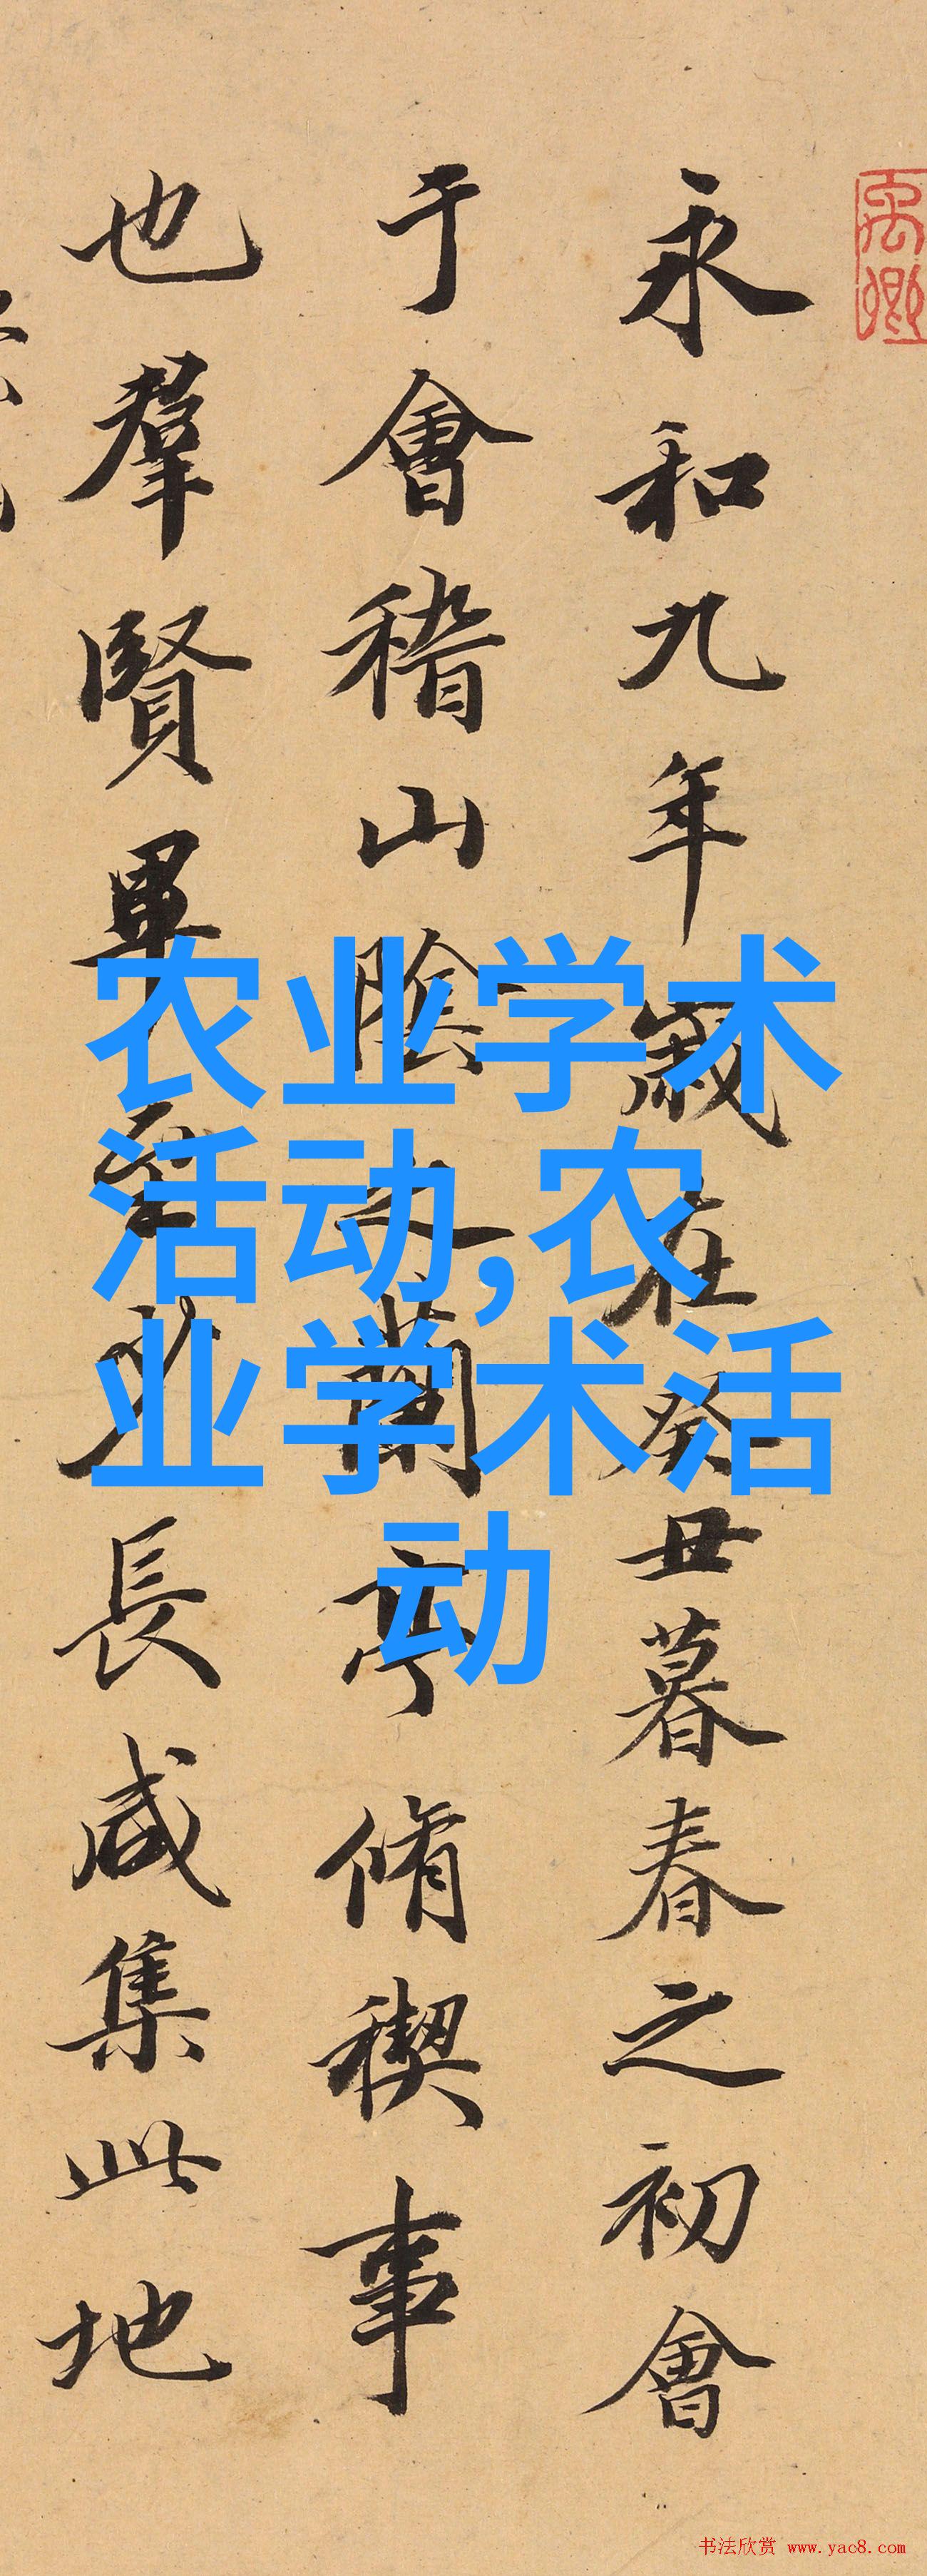 永和九年歲在癸丑暮春之初會
于會稽山陰之蘭亭脩稧事
也羣賢畢至少長咸集此地
农业学术
活动,农
业学术活
动
书法欣赏 www.yac8.com